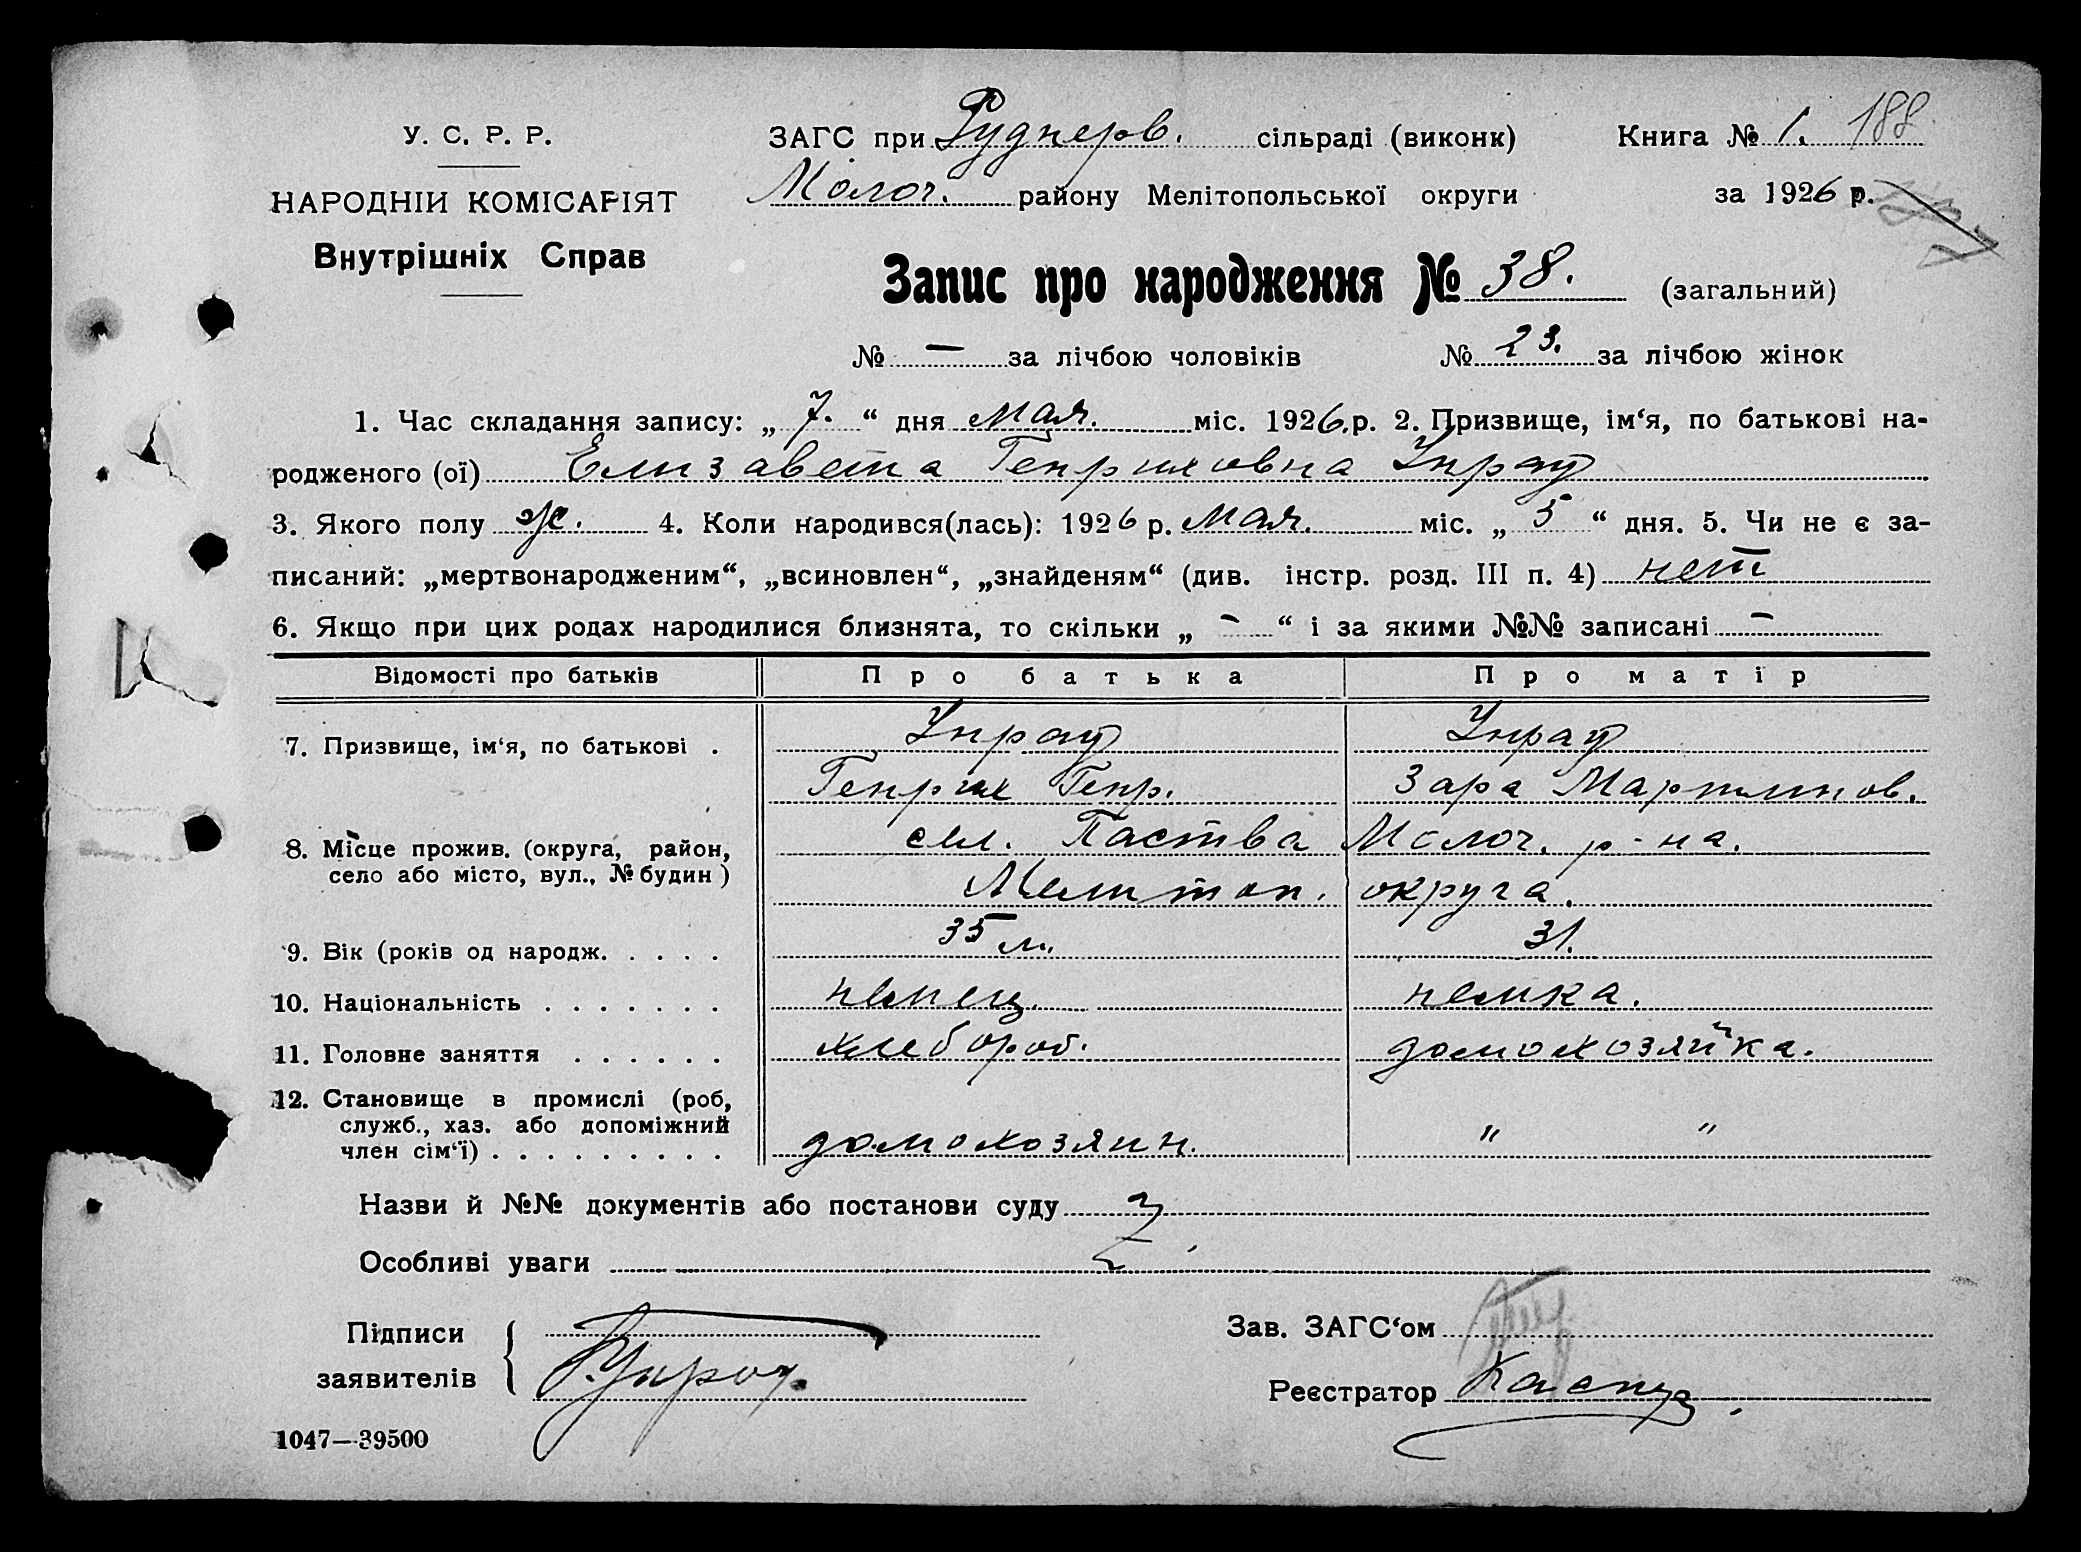 У. С. Р. Р.
НАРОДНІЙ КОМІСАРІЯТ
Внутрішніх Справ
ЗАГС при Руднерв. сільраді (виконк) Книга № 1. 188
Молоч. району Мелітопольської округи за 1926 р.
Запис про народження № 38. (загальний)
№ — за лічбою чоловіків № 23. за лічбою жінок
1. Час складання запису: „ 7. “ дня мая. міс. 1926.р. 2. Призвище, ім‘я, по батькові на-
родженого (ої) Елизавета Генриховна Унрау
3. Якого полу ж. 4. Коли народився(лась): 1926 р. мая. міс. „ 5 “ дня. 5. Чи не є за-
писаний: „мертвонародженим“, „всиновлен“, „знайденям“ (див. інстр. розд. III п. 4) нет
6. Якщо при цих родах народилися близнята, то скільки „ - “ і за якими №№ записані -
Відомості про батьків Про батька Про матір
7. Призвище, ім‘я, по батькові . Унрау Унрау
Генрих Генр. Зара Мартинов.
8. Місце прожив. (округа, район, сел. Паства Молоч. р-на.
село або місто, вул., № будин) Мелитоп. округа.
9. Вік (років од народж. . . . . 35 л. 31.
10. Національність . . . . . . . немец. немка.
11. Головне заняття . . . . . . хлебороб. домохозяйка.
12. Становище в промислі (роб,
служб., хаз. або допоміжний
член сім‘ї) . . . . . . . . . домохозяин. " "
Назви й №№ документів або постанови суду
Особливі уваги
Підписи
заявителів Г. Унрау.
Зав. ЗАГС‘ом
Реєстратор Каспер
1047—39500